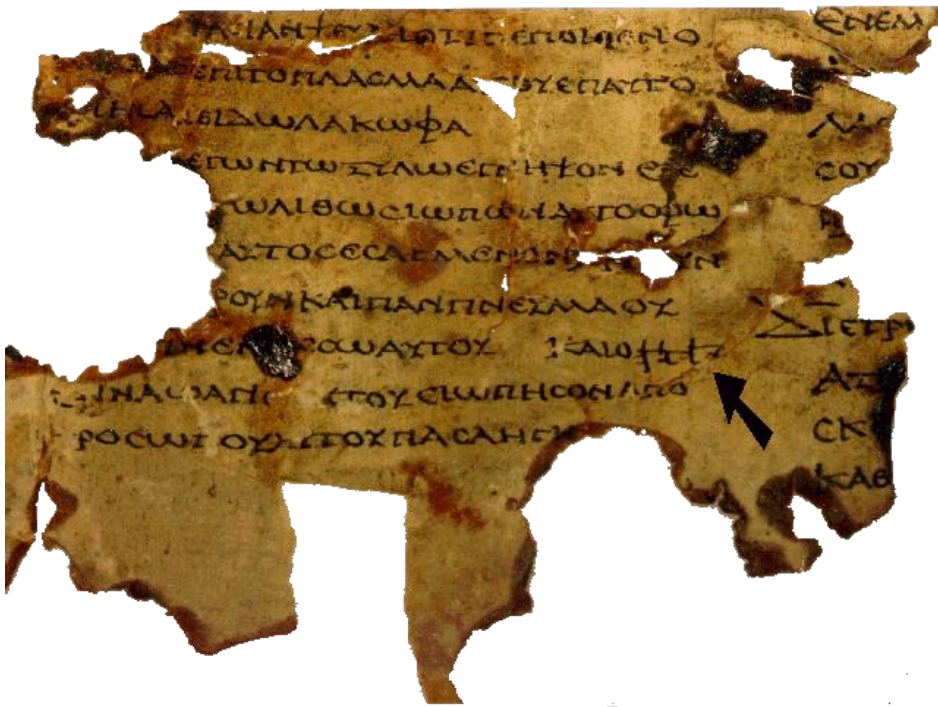 ΙΑΝ ΨΕΥ ΟΤΙ ΠΕΠΟΙΘΕΝ Ο
ΕΠΙ ΤΟ ΠΛΑϹΜΑ Α ΟΥ ΕΠ ΑΥΤΟ
ΕΙΔΩΛΑ ΚΩΦΑ
ΕΓΩΝ ΤΩ ΞΥΛΩ ΕΓΝΗΨΟΝ ΕΞΕ
ΤΩ ΛΙΘΩ ϹΙΩΠΩΝ ΑΥΤΟ ΦΩ
ΑΥΤΟ ϹΕϹΑΓΜΕΝΟΝ
ΡΟΥΝ ΚΑΙ ΠΑΝ ΠΝΕΥΜΑ ΟΥΚ
ΑΥΤΟΥ ΚΑΙ Ο 𐤉𐤄𐤅𐤄
ΝΑΩ ΑΓΙ ΥΤΟΥ ϹΙΩΠΗϹΟΝ ΑΠΟ
ΡΟϹΩΠΟΥ ΑΥΤΟΥ ΠΑϹΑ Η ΓΗ
ΕΝΕΜ
ΛΑ
ϹΟΥ
ΔΙΕΤΡ
ΑΥ
ϹΚ
ΚΑΘ